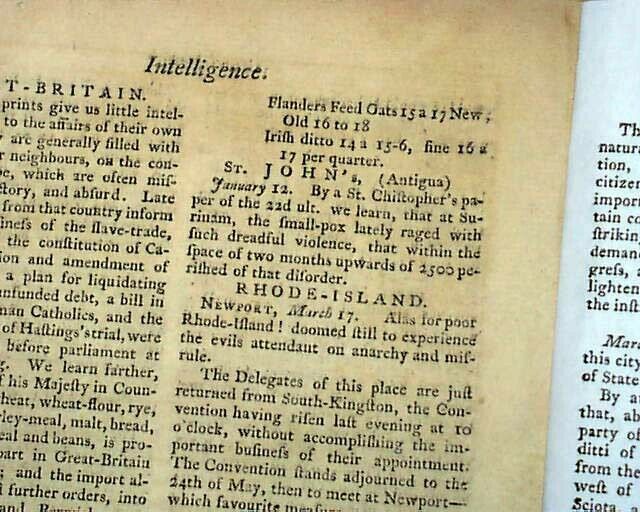 Intelligence.
T-BRITAIN.
prints give us little intel-
to the affairs of their own
are generally filled with
neighbours, on the con-
e, which are often mis-
tory, and absurd. Late
from that country inform
iness of the slave-trade,
the constitution of Ca-
ion and amendment of
a plan for liquidating
unfunded debt, a bill in
man Catholics, and the
of Hastings's trial, were
before parliament at
We learn farther,
his Majesty in Coun-
heat, wheat-flour, rye,
ley-meal, malt, bread,
eal and beans, is pro-
part in Great-Britain
; and the import al-
d further orders, into
Flanders Feed Oats 15 a 17 New;
Old 16 to 18
Irish ditto 14 a 15-6, fine 16 a
17 per quarter.
ST. JOHN's, (Antigua)
January 12. By a St. Chistopher's pa-
per of the 22d ult. we learn, that at Su-
rinam, the small-pox lately raged with
such dreadful violence, that within the
space of two months upwards of 2500 pe-
rished of that disorder.
RHODE-ISLAND.
NEWPORT, March 17. Alas for poor
Rhode-Island! doomed still to experience
the evils attendant on anarchy and mis-
rule.
The Delegates of this place are just
returned from South-Kingston, the Con-
vention having risen last evening at 10
o'clock, without accomplishing the im-
portant business of their appointment.
The Convention stands adjourned to the
24th of May, then to meet at Newport—
which favourite
Th
natura
tion,
citize
import
tain co
striking
demand
gress, a
lighten
the inst
Marc
this city
of State
By a
that, ab
party of
ditti of
from the
west of
Sciota, a